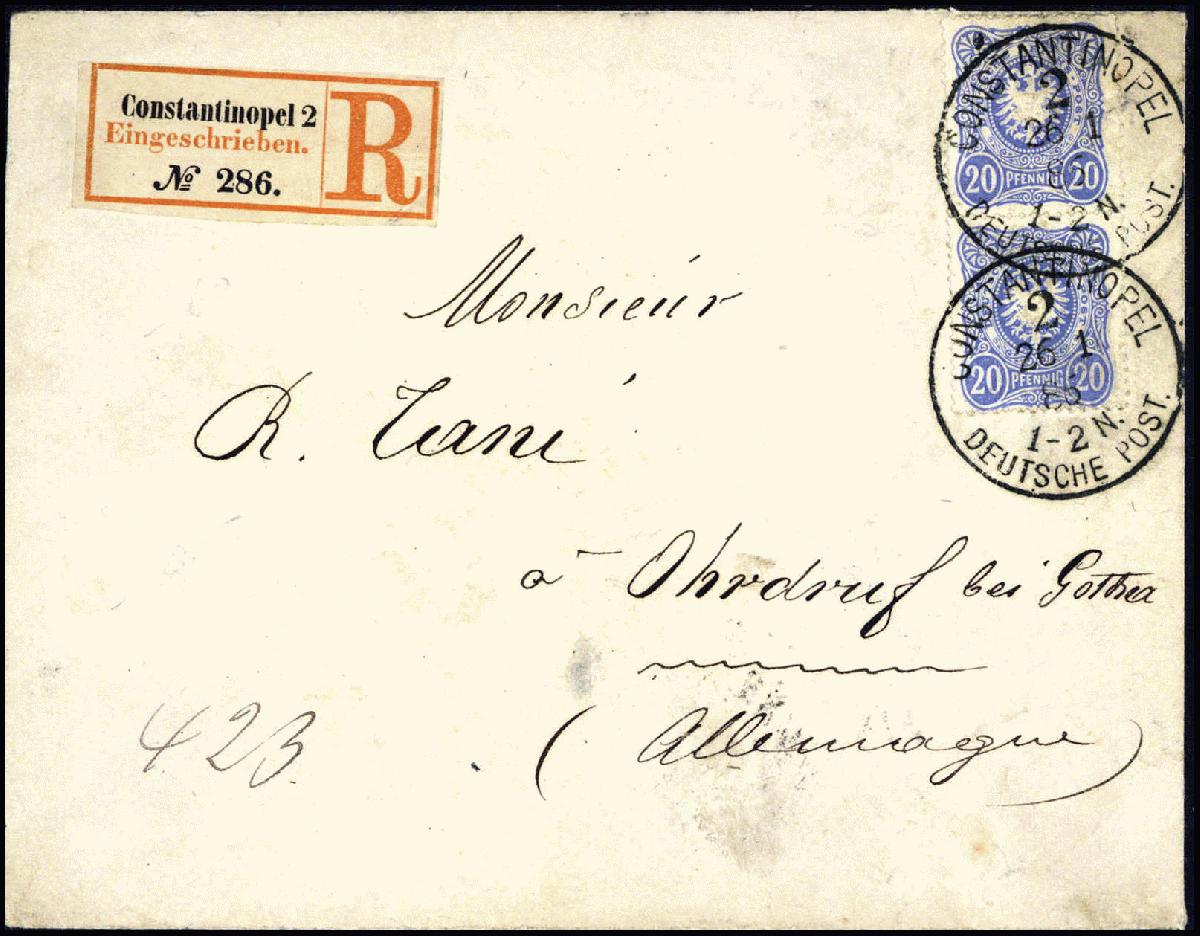 Constantinopel 2
Eingeschrieben.
№ 286.
R
CONSTANTINOPEL
2
26 1
1-2 N.
DEUTSCHE POST.
20 PFENNIG 20
CONSTANTINOPEL
2
26 1
1-2 N.
DEUTSCHE POST.
20 PFENNIG 20
Monsieur
R.
à Ohrdruf bei Gotha
(Allemagne)
423